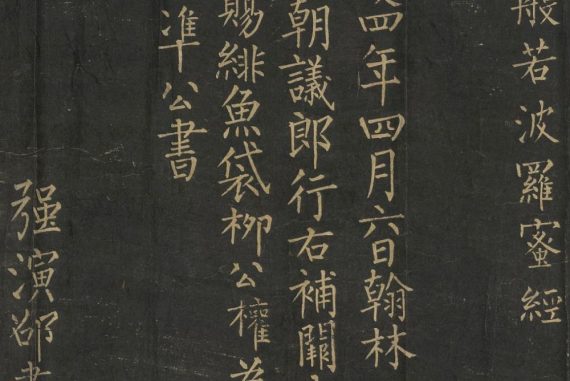 般若波羅蜜經
四年四月六日翰林
朝議郎行右補闕
賜緋魚袋柳公權
准公書
强演邵